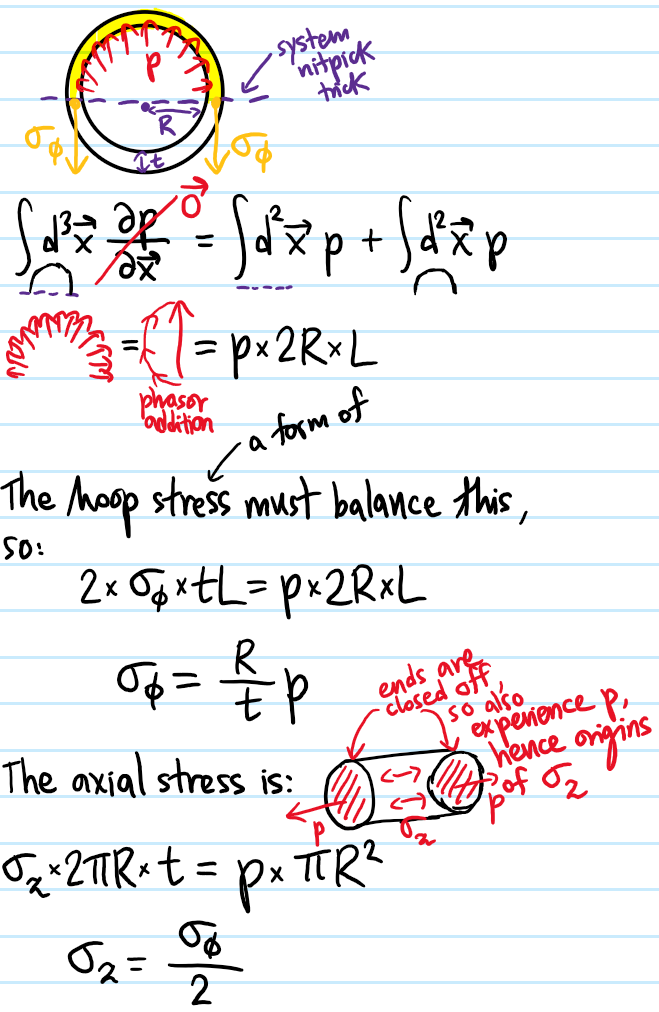 system
nitpick
trick
p
R
σ_ϕ
t
σ_ϕ
∫ d³x⃗ ∂p/∂x⃗ 0⃗ = ∫ d²x⃗ p + ∫ d²x⃗ p
= = p × 2R × L
phasor
addition
a form of
The hoop stress must balance this,
so:
2 × σ_ϕ × tL = p × 2R × L
σ_ϕ = R/t p
ends are
closed off,
so also
experience p,
hence origins
of σ_z
The axial stress is:
p
σ_z
p
σ_z × 2πR × t = p × πR²
σ_z = σ_ϕ/2